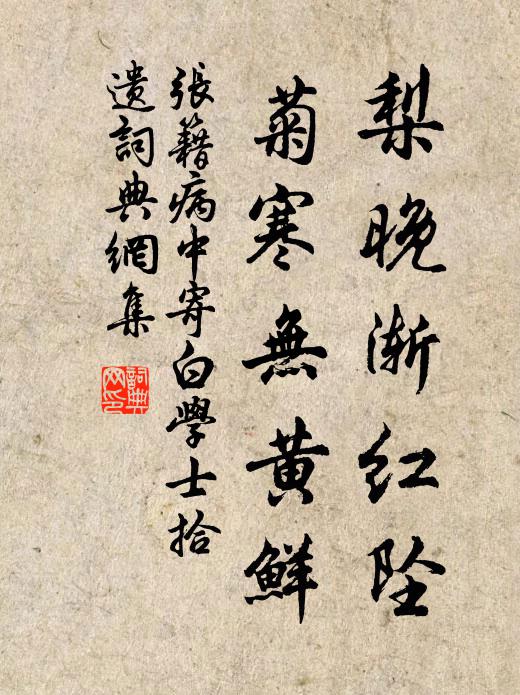 梨晚渐红坠
菊寒無黄鮮
張籍病中寄白學士拾
遺詞典網集
詞典
网印